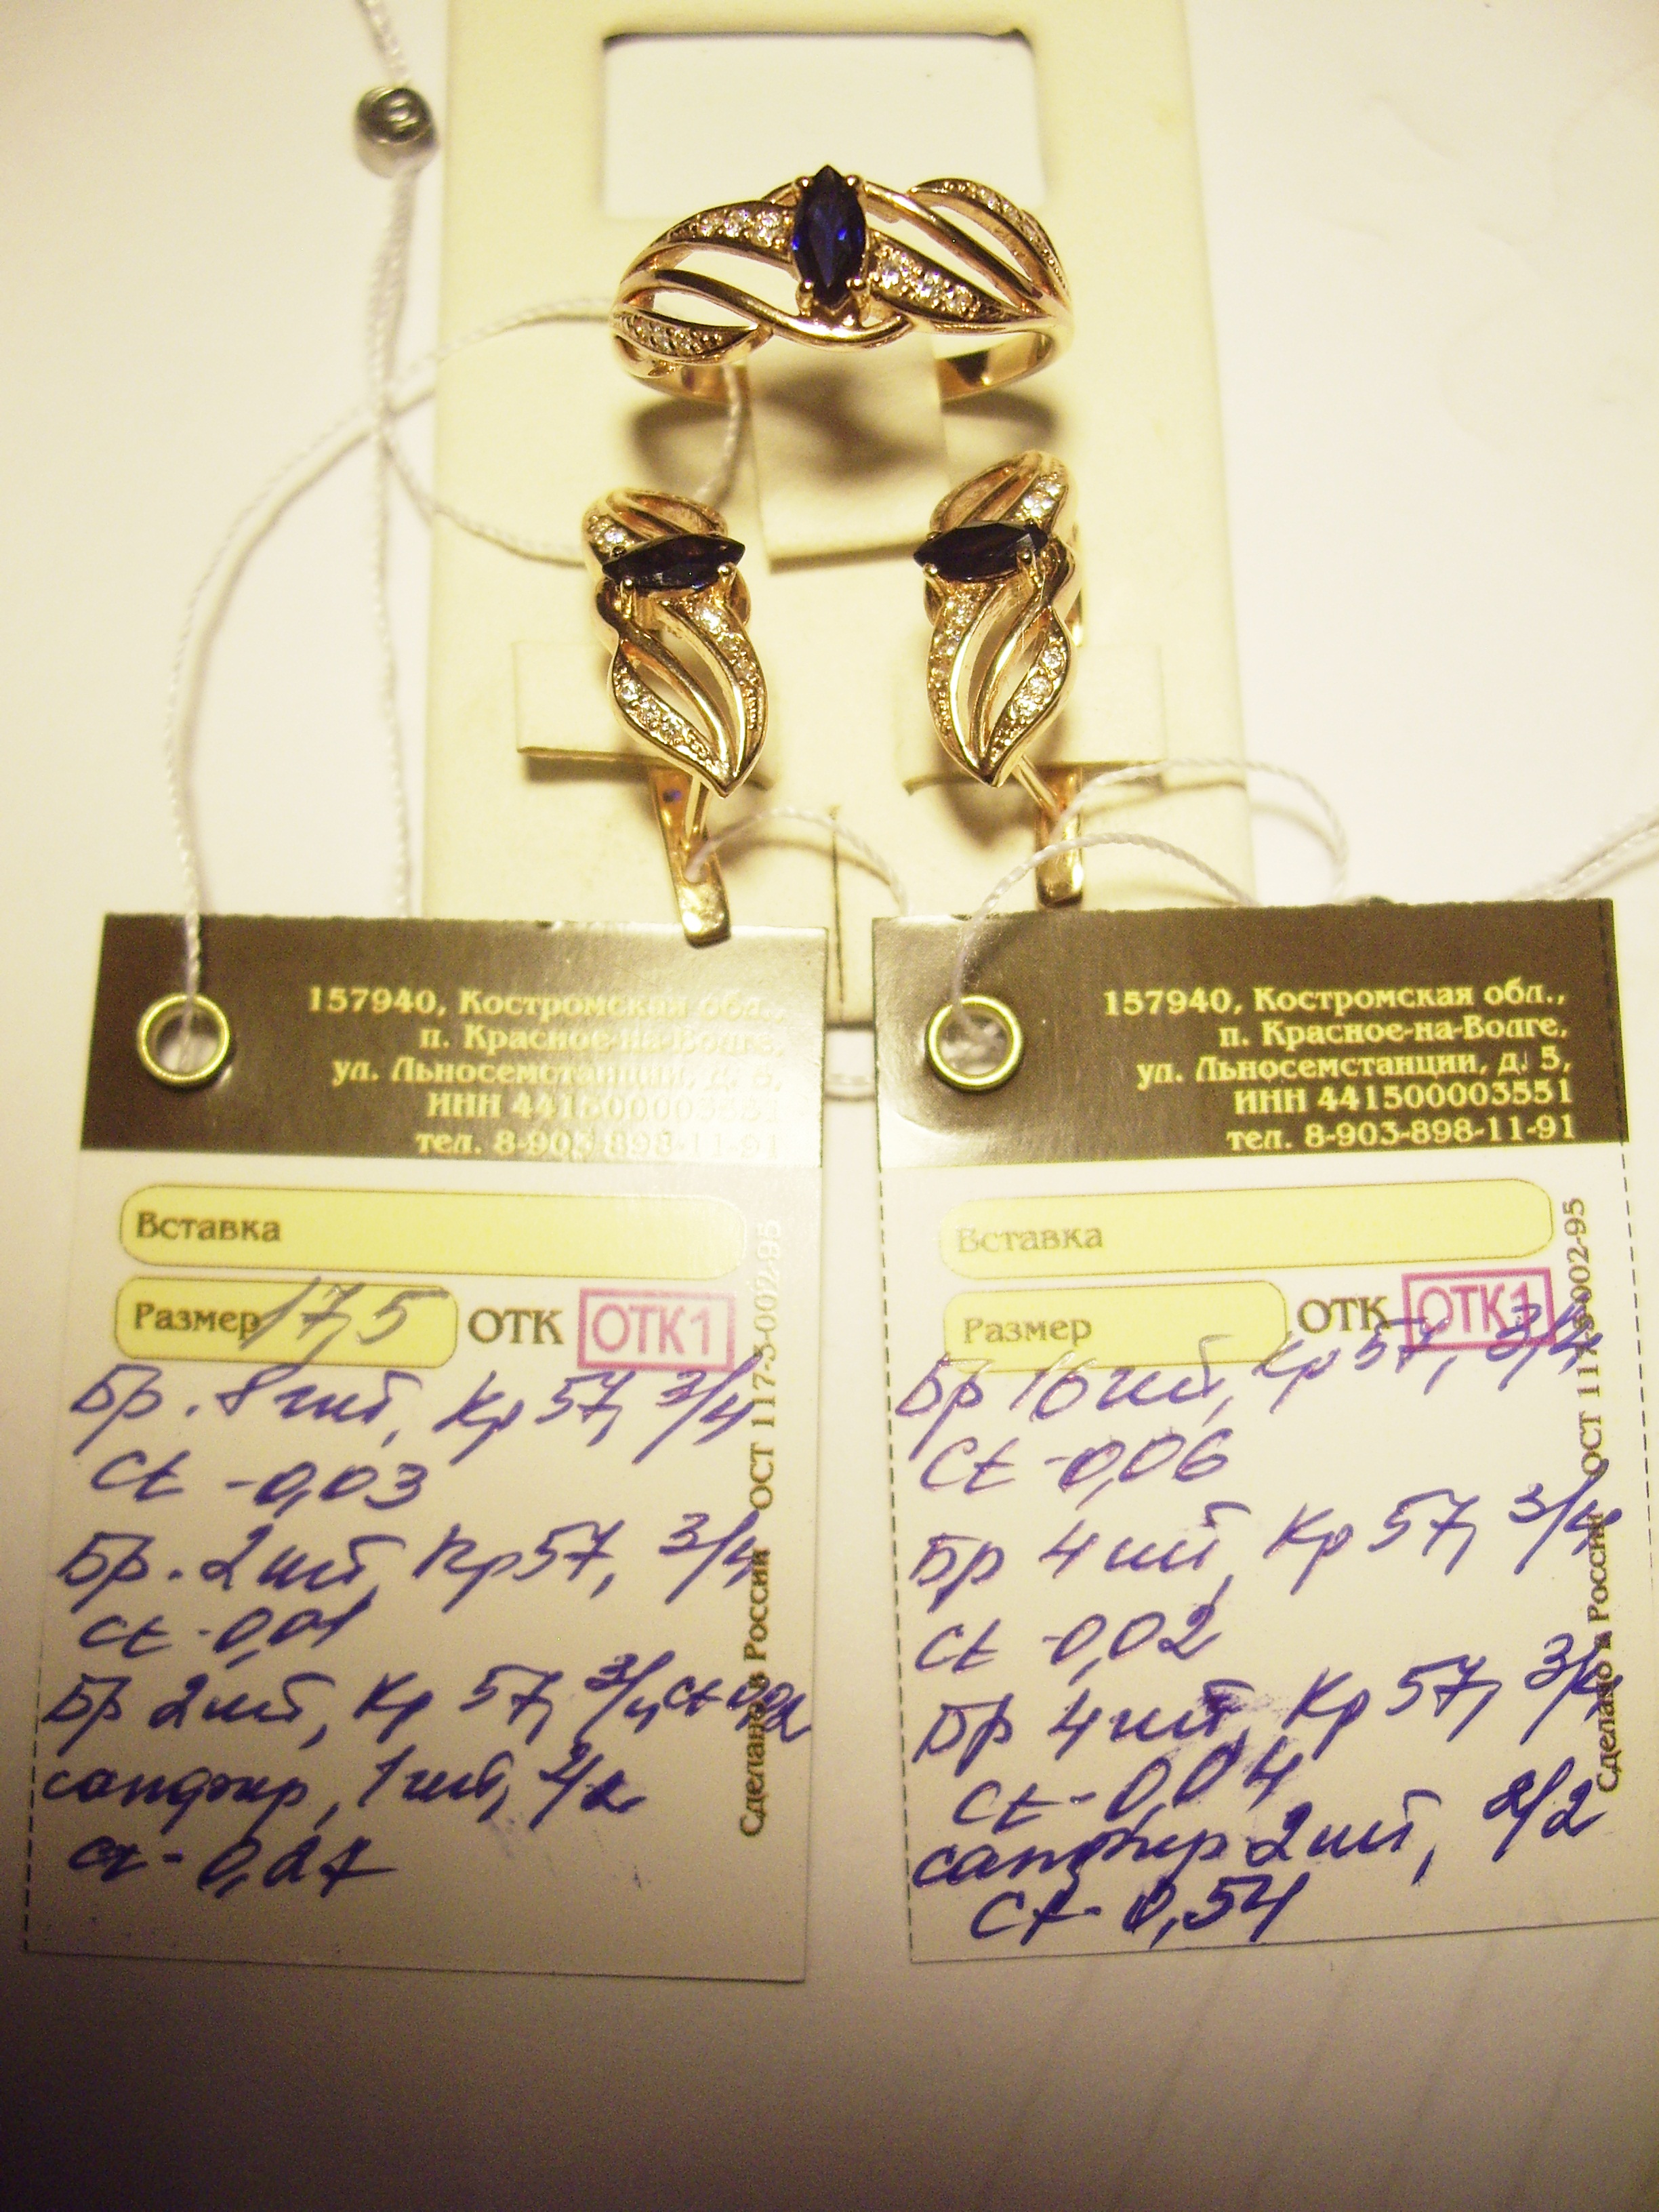 157940, Костромская обл.,
п. Красное-на-Волге,
ул. Льносемстанции, д. 5,
ИНН 441500003551
тел. 8-903-898-11-91
Вставка
Размер 17,5 ОТК ОТК1
Бр. 8 шт, Кр 57, 3/4
ct -0,03
Бр. 2 шт, Кр 57, 3/4
ct -0,01
Бр 2 шт, Кр 57, 3/4 ct 0,02
сапфир, 1 шт, 2/2
ct - 0,27
Сделано в России ОСТ 117-3-002-95
157940, Костромская обл.,
п. Красное-на-Волге,
ул. Льносемстанции, д. 5,
ИНН 441500003551
тел. 8-903-898-11-91
Вставка
Размер ОТК ОТК1
Бр 16 шт, Кр 57, 3/4
ct -0,06
Бр 4 шт, Кр 57, 3/4
ct -0,02
Бр 4 шт, Кр 57, 3/4
ct - 0,04
сапфир 2 шт, 2/2
ct - 0,54
Сделано в России ОСТ 117-3-002-95